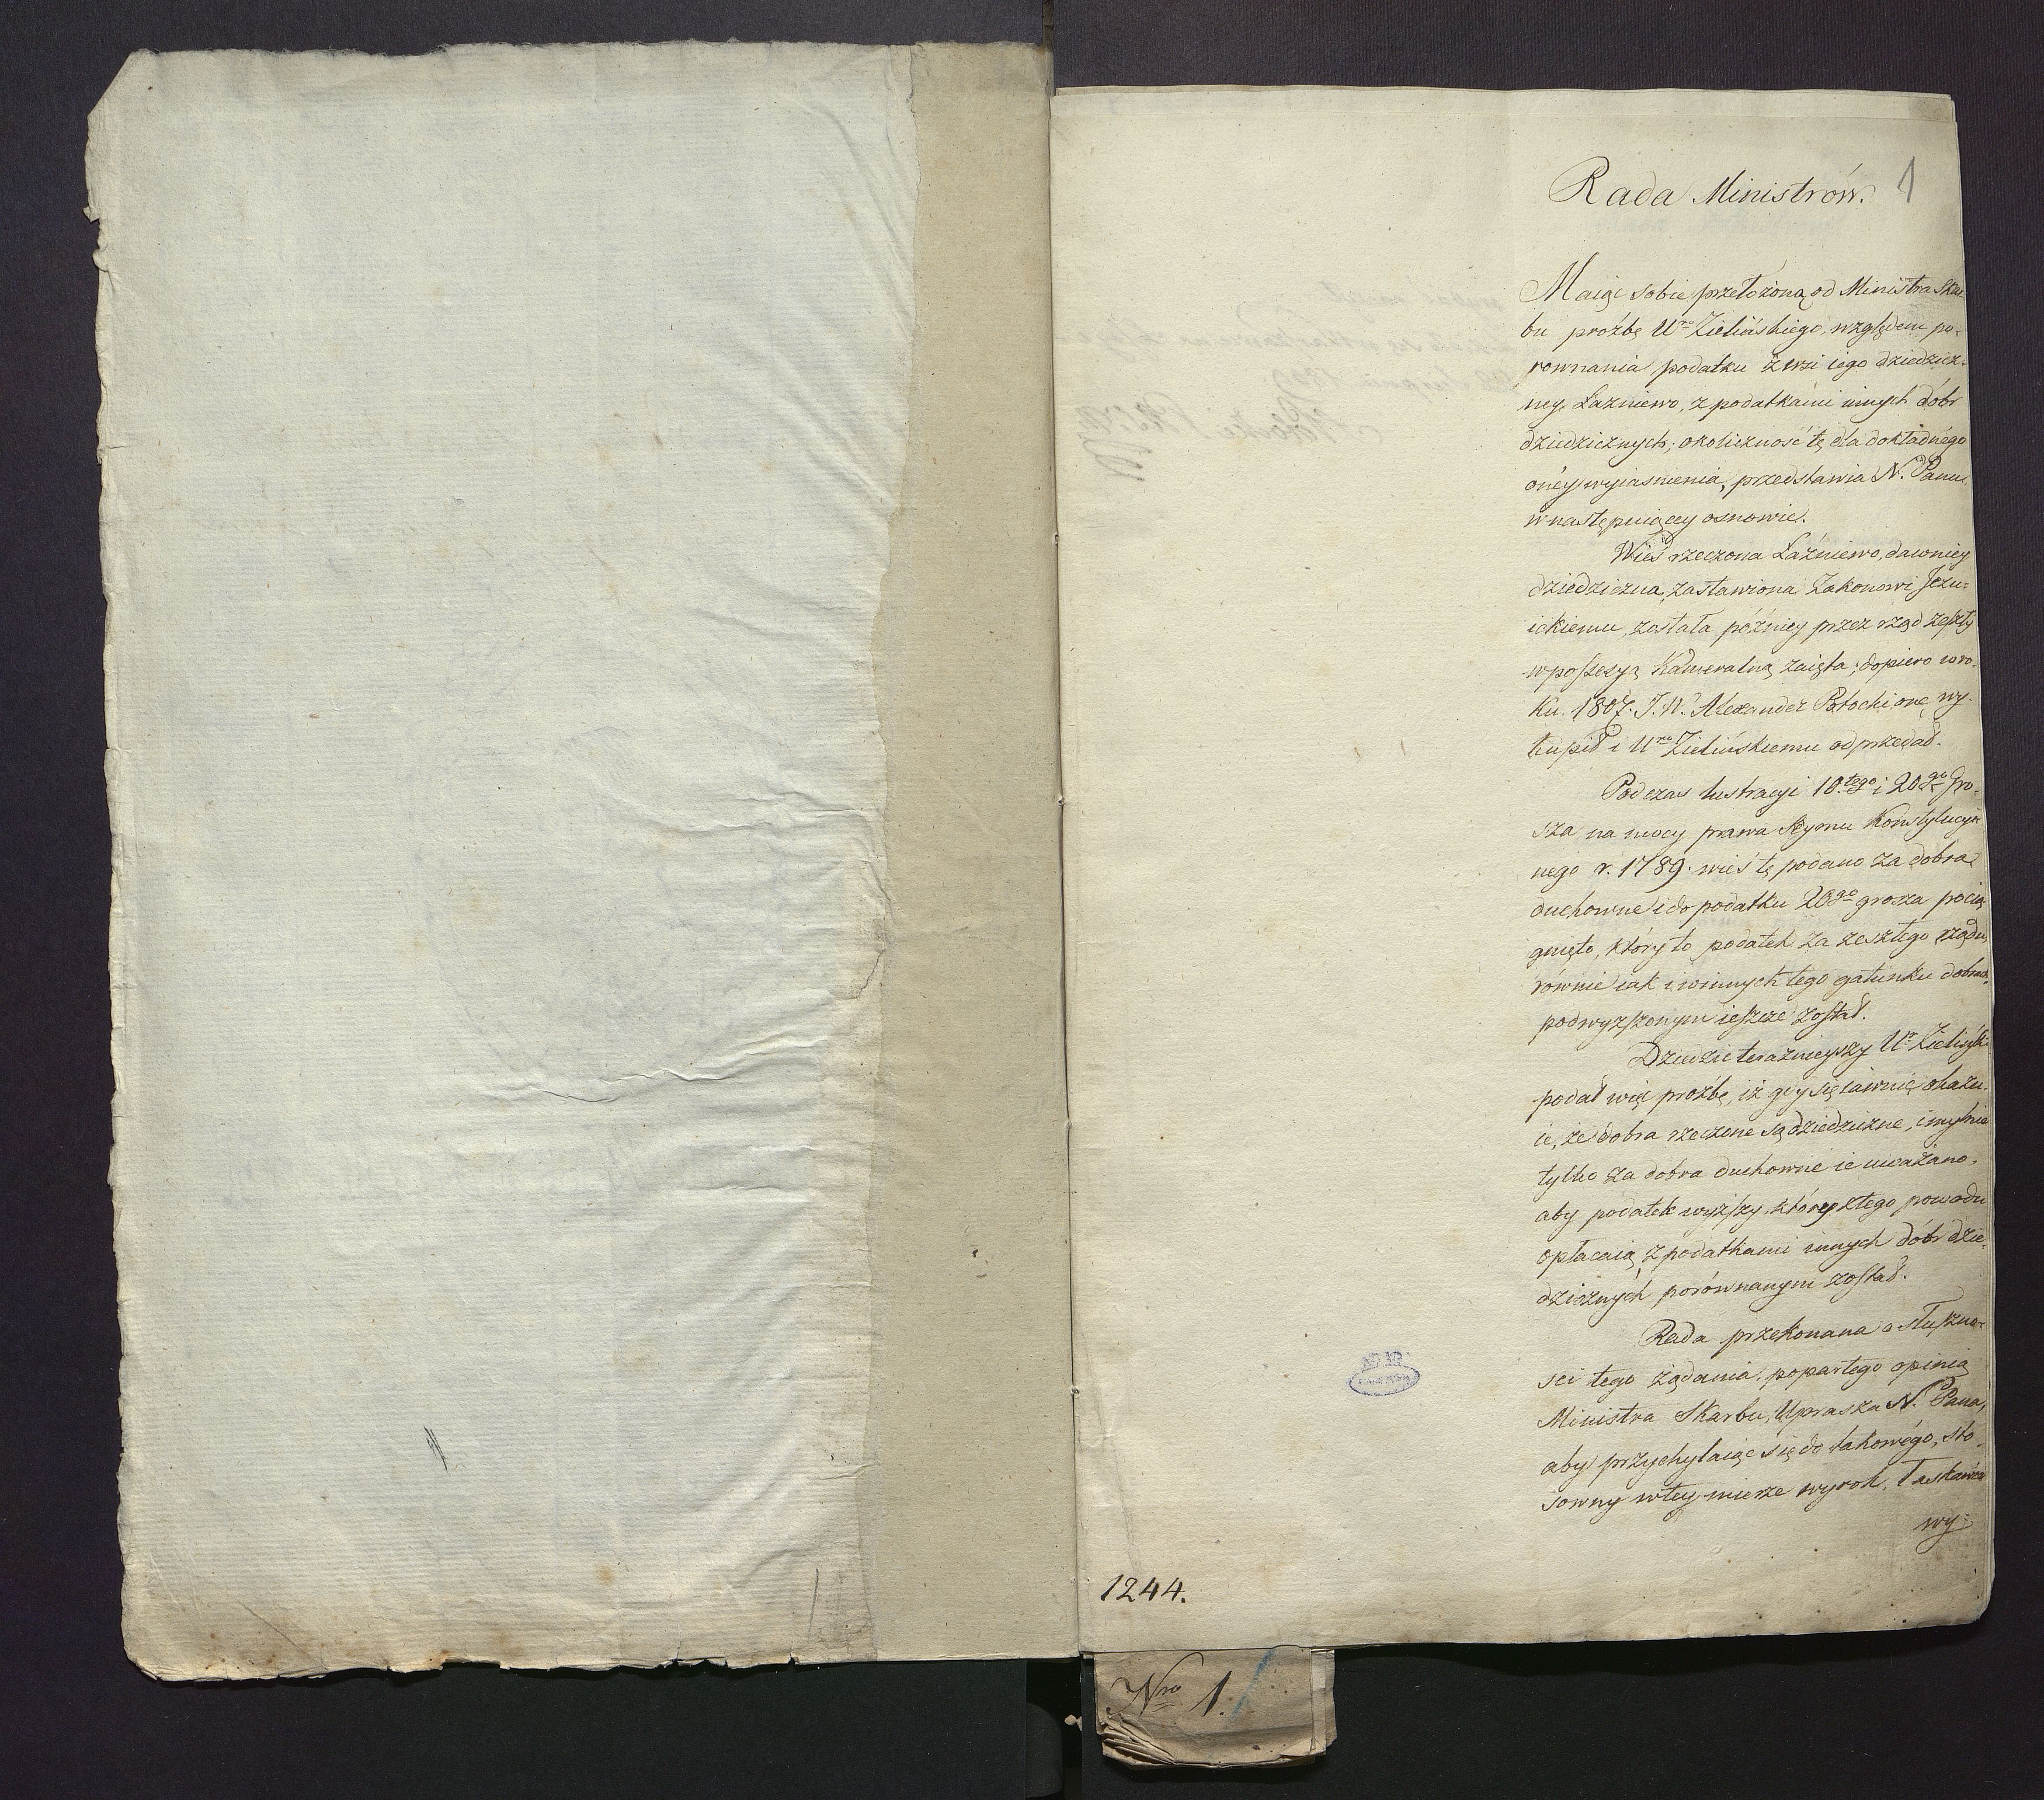 1
Rada Ministrów.
Maiąc sobie przełożoną od Ministra Skar-
bu proźbę Ur. Zielińskiego, względem po-
rownania podatku z wsi iego dziedzicz-
ney Łazniewo, z podatkami innych dóbr
dziedzicznych; okoliczność tę dla dokładnego
oney wyiasnienia, przedstawia N. Panu
w następuiącey osnowie.
Wieś rzeczona Łaźniewo, dawniey
dziedziczna, zastawiona Zakonowi Jezu-
ickiemu, została późniey przez rząd zeszły
w possesyą Kameralną zaięta; dopiero w ro-
ku 1807. J.W. Alexander Potocki onę wy-
kupił i Uro Zielińskiemu odprzedał.
Podczas lustracyi 10.tego i 20go Gro-
sza na mocy prawa Seymu Konstytucyi-
nego r. 1789. wieś tę podano za dobra
duchowne i do podatku 20go grosza pocią-
gnięto, który to podatek za zeszłego rządu,
równie iak i w innych tego gatunku dobrach,
podwyższonym ieszcze został.
Dziedzic teraznieyszy Ur. Zieliński
podał więc proźbę, iż gdy się iawnie okazu-
ie, że dobra rzeczone są dziedziczne, i mylnie
tylko za dobra duchowne ie uważano,
aby podatek wyższy, który z tego powodu
opłacaią, z podatkami innych dóbr dzie-
dzicznych porównanym został.
Rada przekonana o słuszno-
sci tego żądania, popartego opinią
Ministra Skarbu, Uprasza N. Pana,
aby przychylaiąc się do takowego, sto-
sowny w tey mierze wyrok, łaskawie
wy-
1244.
Nro 1.